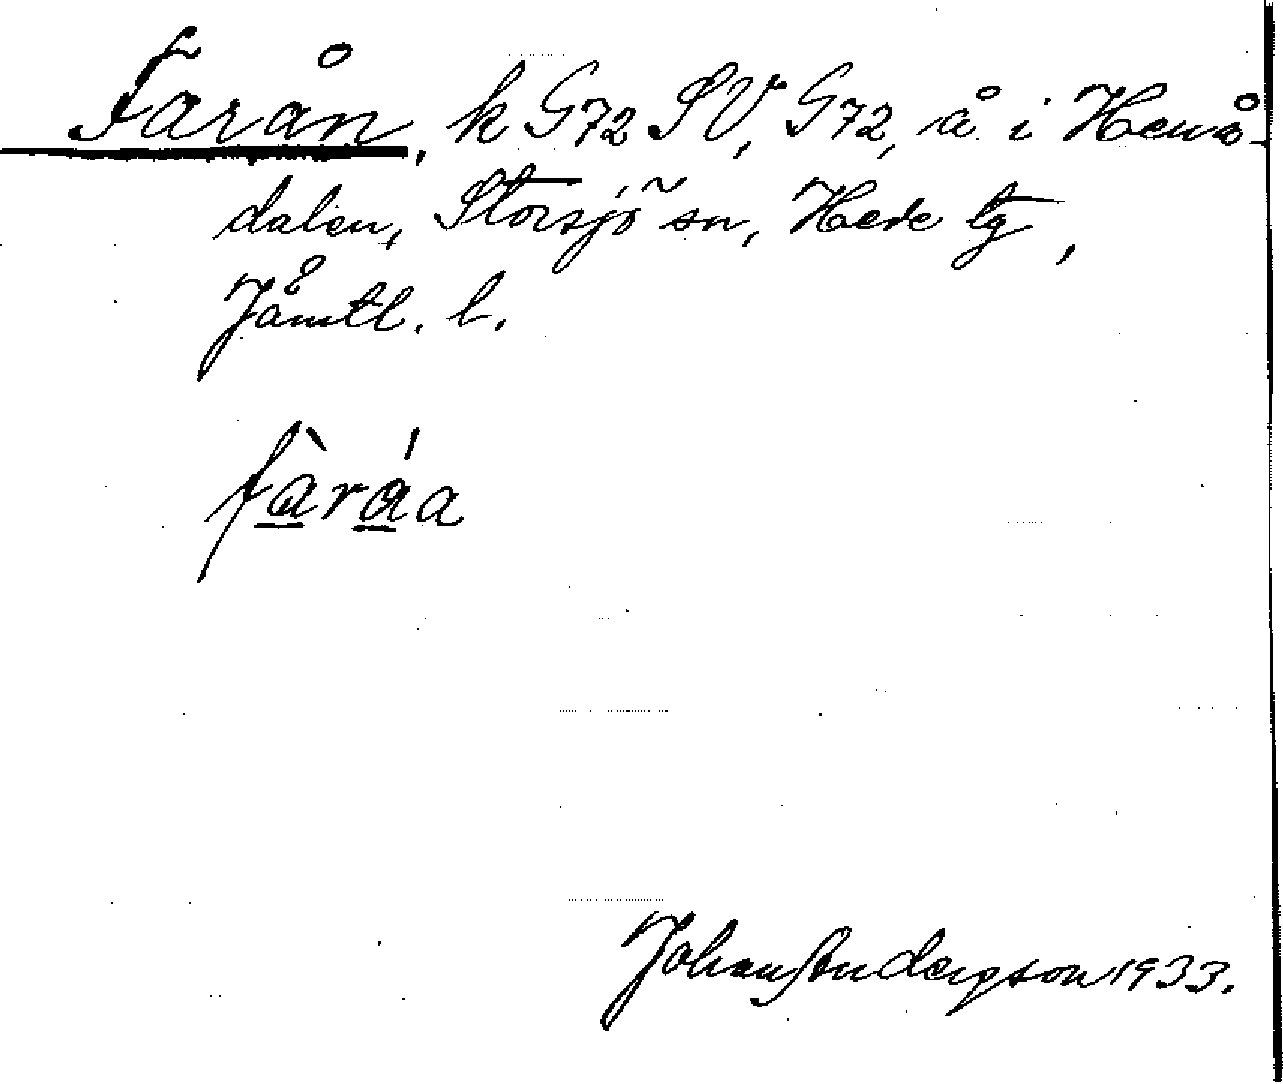 Farån, k G72 SV, G72, å i Henå-
dalen, Storsjö sn, Hede tg,
Jämtl. l.
fàráa
Johan Andersson 1933.